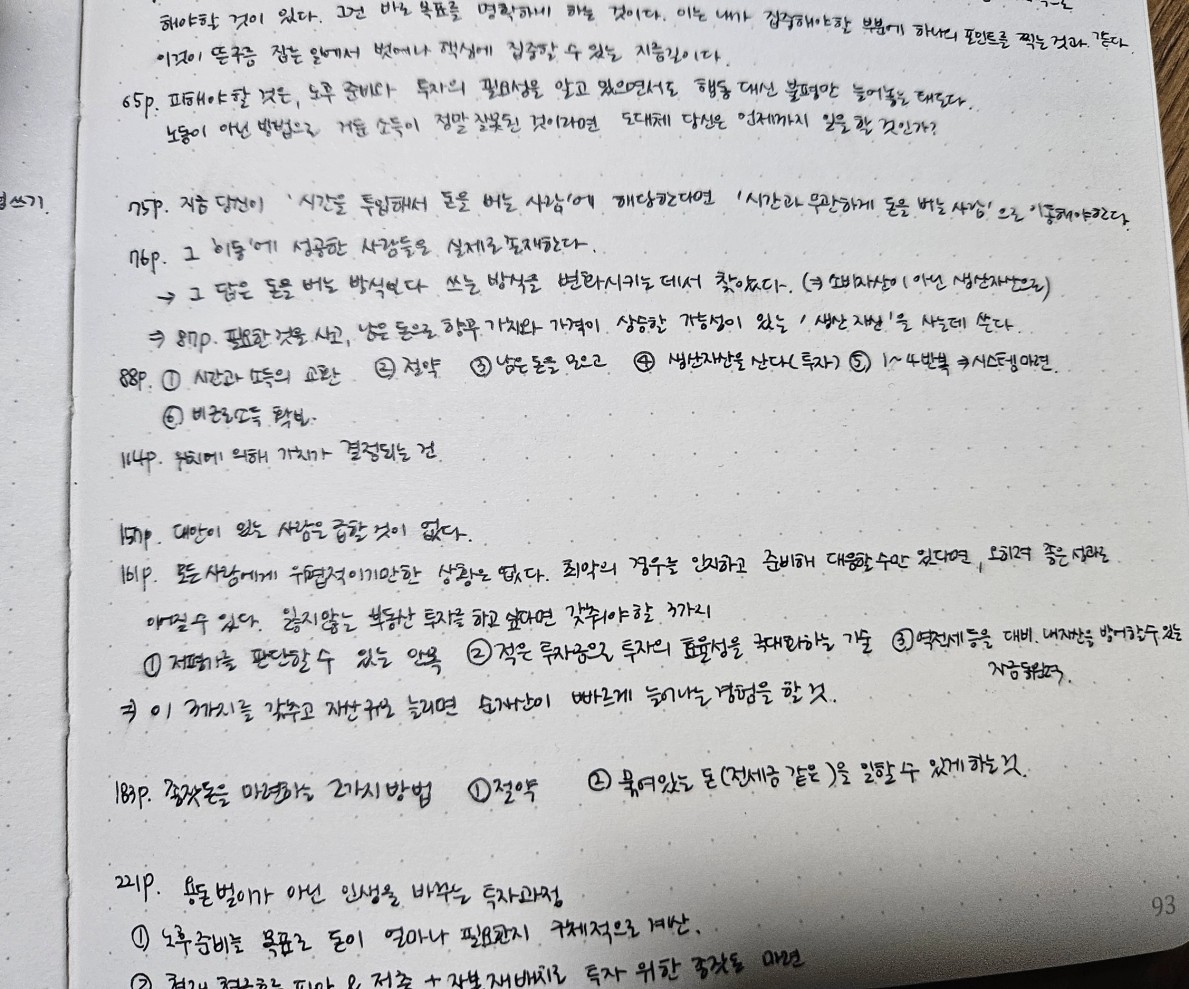 해야할 것이 있다. 그건 바로 목표를 명확하게 하는 것이다. 이는 내가 집중해야할 부분에 하나의 포인트를 찍는 것과 같다.
이것이 뜬구름 잡는 일에서 벗어나 핵심에 집중할 수 있는 지름길이다.
65p. 피해야할 것은, 노후 준비와 투자의 필요성을 알고 있으면서도 행동 대신 불평만 늘어놓는 태도다.
노동이 아닌 방법으로 거둔 소득이 정말 잘못된 것이라면 도대체 당신은 언제까지 일을 할 것인가?
쓰기.
75p. 지금 당신이 '시간을 투입해서 돈을 버는 사람'에 해당한다면 '시간과 무관하게 돈을 버는 사람'으로 이동해야한다.
76p. 그 '이동'에 성공한 사람들은 실제로 존재한다.
→ 그 답은 돈을 버는 방식보다 쓰는 방식을 변화시키는 데서 찾았다. (⇒ 소비자산이 아닌 생산자산으로)
⇒ 87p. 필요한 것을 사고, 남은 돈으로 향후 가치와 가격이 상승할 가능성이 있는 '생산자산'을 사는데 쓴다.
88p. ① 시간과 소득의 교환 ② 절약 ③ 남은 돈을 모으고 ④ 생산자산을 산다(투자) ⑤ 1~4반복 ⇒ 시스템마련
⑥ 비근로소득 확보.
114p. 위치에 의해 가치가 결정되는 건
157p. 대안이 있는 사람은 급할 것이 없다.
161p. 모든 사람에게 위협적이기만한 상황은 없다. 최악의 경우를 인지하고 준비해 대응할 수만 있다면, 오히려 좋은 성과로
이어질 수 있다. 잃지않는 부동산 투자를 하고 싶다면 갖춰야할 3가지
① 저평가를 판단할 수 있는 안목 ② 적은 투자금으로 투자의 효율성을 극대화하는 기술 ③ 역전세 등을 대비, 내자산을 방어할 수 있는
자금동원력.
⇒ 이 3가지를 갖추고 자산규모 늘리면 순자산이 빠르게 늘어나는 경험을 할 것.
183p. 종잣돈을 마련하는 2가지 방법 ① 절약 ② 묶여있는 돈(전세금 같은)을 일할 수 있게 하는 것.
221p. 용돈벌이가 아닌 인생을 바꾸는 투자과정
① 노후준비는 목표로 돈이 얼마나 필요한지 구체적으로 계산.
② 현재 현금흐름 파악 & 저축 + 자본 재배치로 투자 위한 종잣돈 마련
93